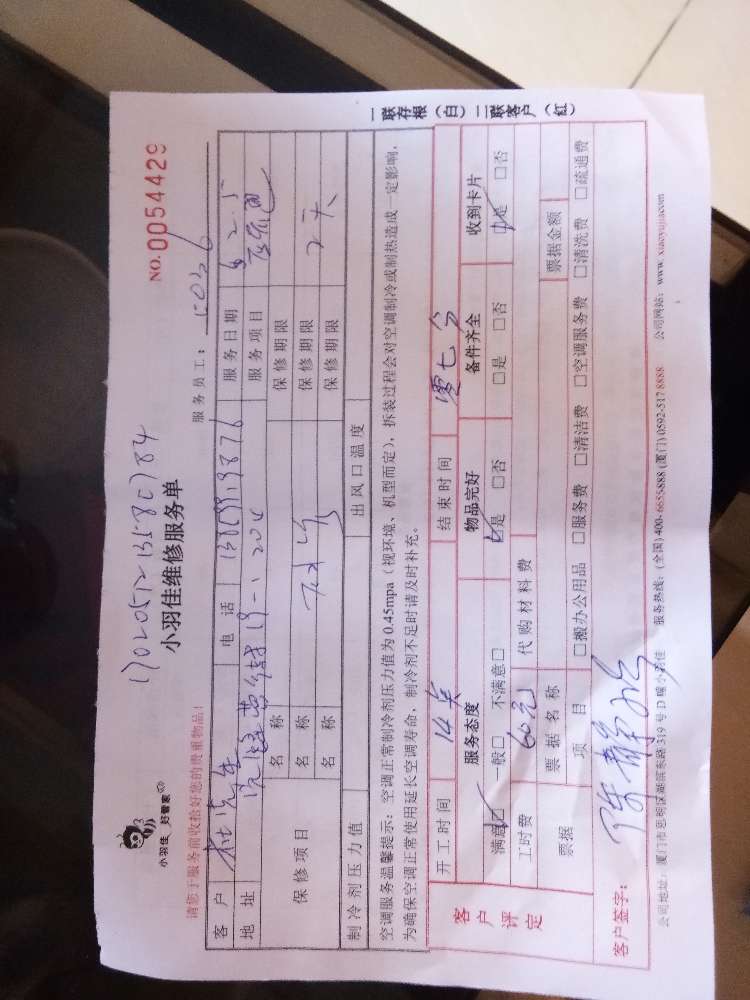 1702051213580784
小羽佳 好管家
小羽佳维修服务单
NO.0054429
请您于服务前收拾好您的贵重物品!
服务员工:
客户 杜先生 电话 服务日期 2.5
地址 服务项目
保修项目 名称 保修期限
名称 保修期限 2天
名称 保修期限
制冷剂压力值 出风口温度
空调服务温馨提示:空调正常制冷剂压力值为0.45mpa(视环境、机型而定),拆装过程会对空调制冷或制热造成一定影响,
为确保空调正常使用延长空调寿命,制冷剂不足时请及时补充。
一联存根(白)二联客户(红)
客户评定
开工时间 14点 结束时间
服务态度 物品完好 备件齐全 收到卡片
满意□ 一般□ 不满意□ □是 □否 □是 □否 □是 □否
工时费 60元 代购材料费
票据 票据名称 票据金额
项目 □搬办公用品 □服务费 □清洁费 □空调服务费 □清洗费 □疏通费
客户签字:
公司地址:厦门市思明区湖滨东路319号D幢小羽佳 服务热线:(全国)400-6655-888 (厦门)0592-517 8888 公司网站:www.xiaoyujia.com